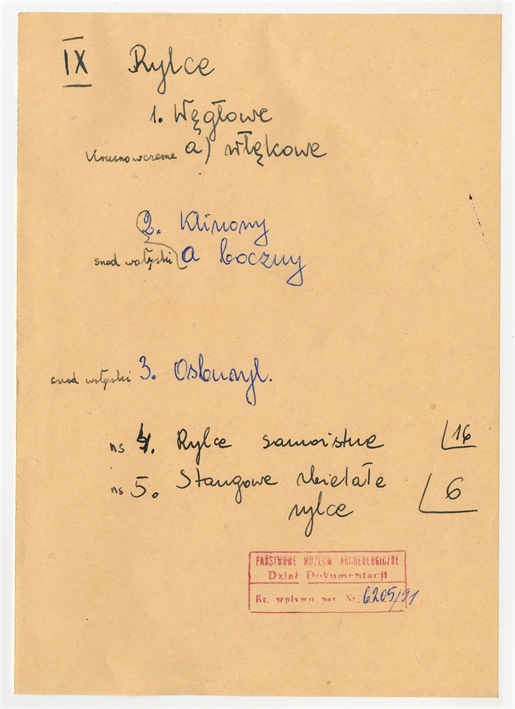 IX Rylce
1. Węgłowe
a) włękowe
2. Klinowy
snod wołyski a boczny
snod wołyski 3. Osłuzyl.
ns 4. Rylce samoistne 16
ns 5. Stangowe zbielałe 6
rylce
PAŃSTWOWE MUZEUM ARCHEOLOGICZNE
Dział Dokumentacji
Ks. wpływu par. Nr. 6205/91